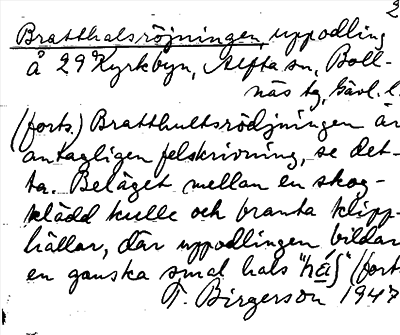 2
Bratthalsröjningen, uppodling
å 29 Kyrkbyn, Alfta sn, Boll-
näs tg, Gävl. l.
(forts.) Bratthultsrödjningen är
antagligen felskrivning, se det-
ta. Beläget mellan en skog-
klädd kulle och branta klipp-
hällar, där uppodlingen bildar
en ganska smal hals "hāʃ" (forts
T. Birgerson 1947